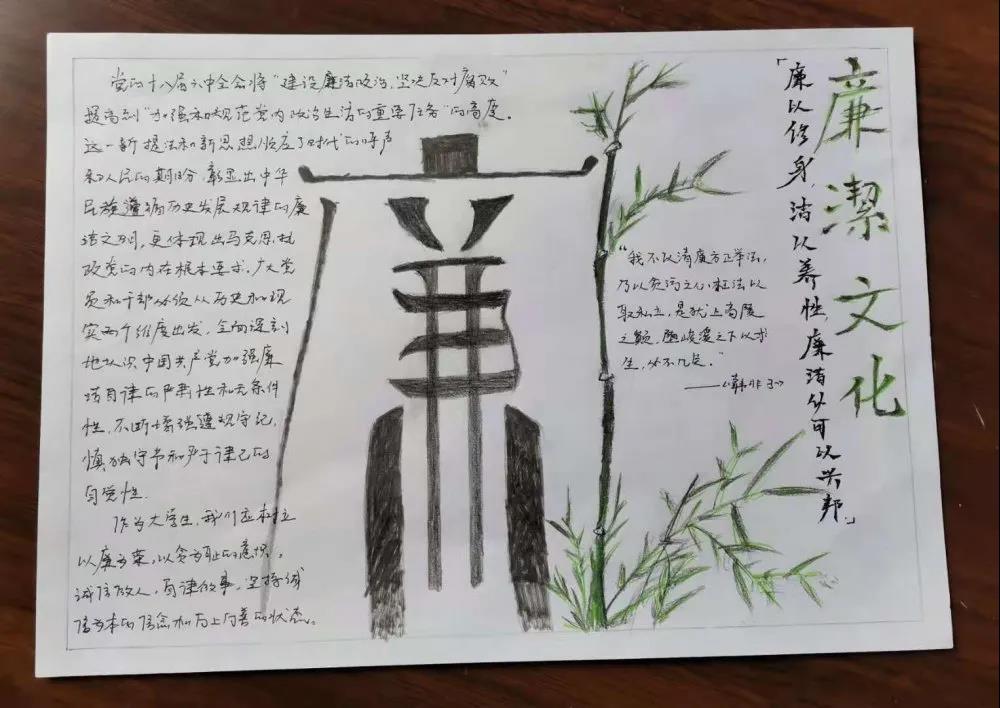 党的十八届六中全会将“建设廉洁政治,坚决反对腐败”
提高到“加强和规范党内政治生活的重要任务”的高度。
这一新提法和新思想顺应了时代的呼声
和人民的期盼,彰显出中华
民族遵循历史发展规律的廉
洁之列,更体现出马克思执
政党的内在根本要求,广大党
员和干部必须从历史和现
实两个维度出发,全面深刻
地认识中国共产党加强廉
洁自律的严肃性和无条件
性,不断增强遵规守纪,
慎独守节和严于律己的
自觉性.
作为大学生,我们应树立
以廉为荣,以贪为耻的意识,
诚信做人,自律做事,坚持诚
信为本的信念和向上向善的状态。
廉
“我不以清廉方正奉法,
乃以贪污之心枉法以
取私利,是犹上高陵
之颠,堕峻溪之下以求
生,必不几矣.”
——《韩非子》
「廉以修身,洁以养性,廉洁外可以兴邦」
廉潔文化